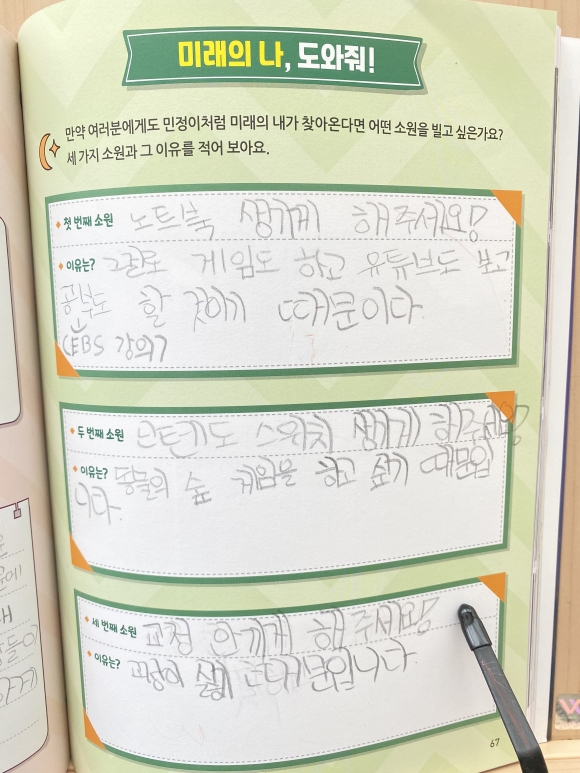 미래의 나, 도와줘!
만약 여러분에게도 민정이처럼 미래의 내가 찾아온다면 어떤 소원을 빌고 싶은가요?
세 가지 소원과 그 이유를 적어 보아요.
첫 번째 소원 노트북 생기게 해주세요!
이유는? 그걸로 게임도 하고 유튜브도 보고
공부도 할 것이기 때문이다.
(EBS 강의)
두 번째 소원 닌텐도 스위치 생기게 해주세요!
이유는? 동물의 숲 게임을 하고 싶기 때문입
니다.
세 번째 소원 교정 안끼게 해주세요!
이유는? 교정이 싫기 때문입니다.
67